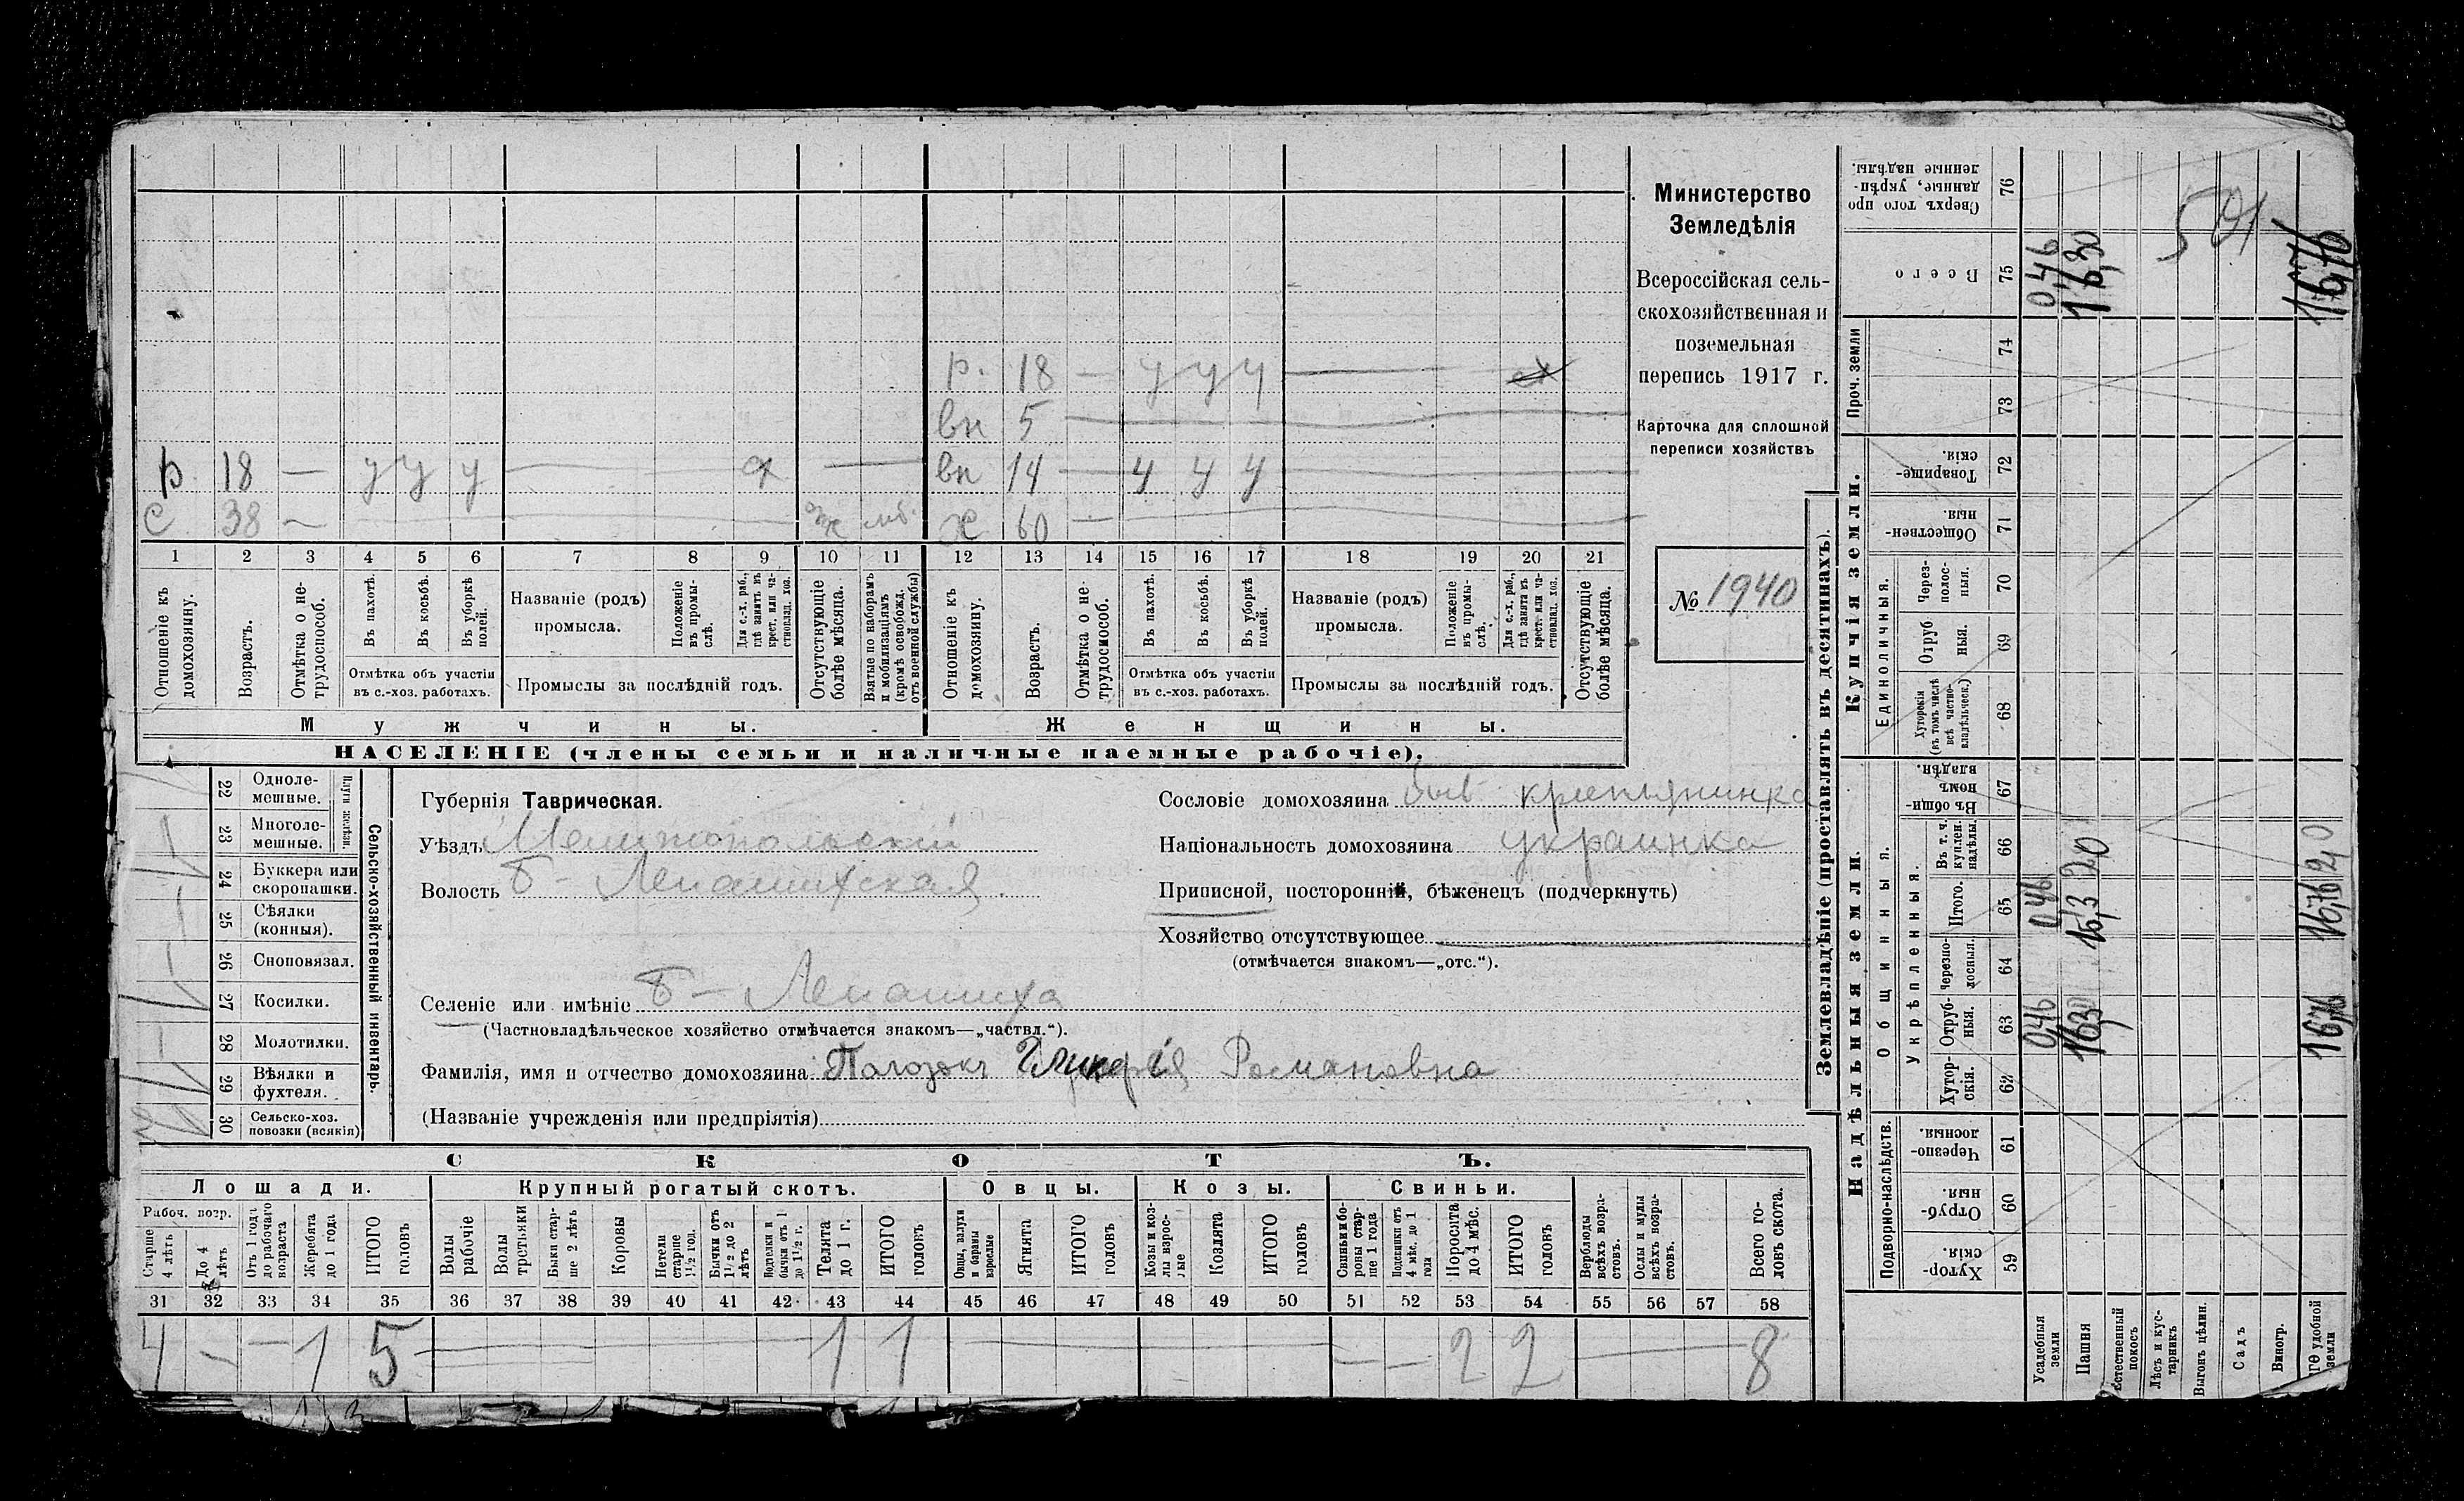 р. 18 — у у у — сх
вн 5 —
р 18 — у у у — сх — вн 14 — у у у —
с 38 — ж мб. х 60 —
1 2 3 4 5 6 7 8 9 10 11 12 13 14 15 16 17 18 19 20 21
Отношеніе къ домохозяину.
Возрастъ.
Отмѣтка о нетрудоспособ.
Въ пахотѣ.
Въ косьбѣ.
Въ уборкѣ полей.
Отмѣтка объ участіи
въ с.-хоз. работахъ.
Названіе (родъ)
промысла.
Положеніе въ промыслѣ.
Для с.-х. раб., гдѣ занятъ въ крест. или частновлад. хоз.
Промыслы за послѣдній годъ.
Отсутствующіе болѣе мѣсяца.
Взятые по наборамъ и мобилизаціямъ (кромѣ освобожд. отъ военной службы)
Отношеніе къ домохозяину.
Возрастъ.
Отмѣтка о нетрудоспособ.
Въ пахотѣ.
Въ косьбѣ.
Въ уборкѣ полей.
Отмѣтка объ участіи
въ с.-хоз. работахъ.
Названіе (родъ)
промысла.
Положеніе въ промыслѣ.
Для с.-х. раб., гдѣ занята въ крест. или частновлад. хоз.
Промыслы за послѣдній годъ.
Отсутствующіе болѣе мѣсяца.
Мужчины. Женщины.
НАСЕЛЕНІЕ (члены семьи и наличные наемные рабочіе).
Министерство
Земледѣлія
Всероссійская сель-
скохозяйственная и
поземельная
перепись 1917 г.
Карточка для сплошной
переписи хозяйствъ
№ 1940
22 Одноле-
мешные.
23 Многоле-
мешные.
Плуги желѣзн.
24 Буккера или
скоропашки.
25 Сѣялки
(конныя).
26 Сноповязал.
27 Косилки.
28 Молотилки.
29 Вѣялки и
фухтеля.
30 Сельско-хоз.
повозки (всякія)
Сельско-хозяйственный инвентарь.
Губернія Таврическая.
Уѣздъ Мелитопольскій
Волость Б - Лепатихская
Селеніе или имѣніе Б - Лепатиха
(Частновладѣльческое хозяйство отмѣчается знакомъ—„частвл.“).
Фамилія, имя и отчество домохозяина Гликерія Романовна
(Названіе учрежденія или предпріятія)
Сословіе домохозяина быв крестьянинка
Національность домохозяина украинка
Приписной, посторонній, бѣженецъ (подчеркнуть)
Хозяйство отсутствующее
(отмѣчается знакомъ—„отс.“).
СКОТЪ.
Лошади. Крупный рогатый скотъ. Овцы. Козы. Свиньи.
Рабоч. возр.
Старше 4 лѣтъ
До 4 лѣтъ
Отъ 1 года до рабочаго возраста
Жеребята до 1 года
ИТОГО головъ
Волы рабочіе
Волы третьяки
Быки старше 2 лѣтъ
Коровы
Нетели старше 1½ год.
Бычки отъ 1½ до 2 лѣтъ
Подтелки и бычки отъ 1 до 1½ г.
Телята до 1 г.
ИТОГО головъ
Овцы, валухи и бараны взрослые
Ягнята
ИТОГО головъ
Козы и козлы взрослые
Козлята
ИТОГО головъ
Свиньи и боровы старше 1 года
Подсвинки отъ 4 мѣс. до 1 года
Поросята до 4 мѣс.
ИТОГО головъ
Верблюды всѣхъ возрастовъ.
Ослы и мулы всѣхъ возрастовъ.
Всего головъ скота.
31 32 33 34 35 36 37 38 39 40 41 42 43 44 45 46 47 48 49 50 51 52 53 54 55 56 57 58
4 — — 1 5 — 1 1 — — — 2 2 — 8
Землевладѣніе (проставлять въ десятинахъ).
Надѣльныя земли.
Купчія земли.
Проч. земли
Подворно-наслѣдств.
Общинныя.
Укрѣпленныя.
Единоличныя.
59 Хуторскія.
60 Отрубныя.
61 Черезполосныя.
62 Хуторскія.
63 Отрубныя. 0,46 16,30 16,76
64 Черезполосныя.
65 Итого. 0,46 16,3 16,76
66 Въ т. ч. куплен. надѣлы. 2,0 2,0
67 Въ общинномъ владѣн.
68 Хуторскія (въ томъ числѣ всѣ частновладѣльческ.)
69 Отрубныя.
70 Черезполосныя.
71 Общественныя.
72 Товарищескія.
73
74
75 Всего 0,46 16,30 16,76
76 Сверхъ того проданные, укрѣпленные надѣлы.
501
Усадебныя земли
Пашня
Естественный покосъ
Лѣсъ и кустарникъ
Выгонъ цѣлин.
Садъ
Виногр.
удобной земли